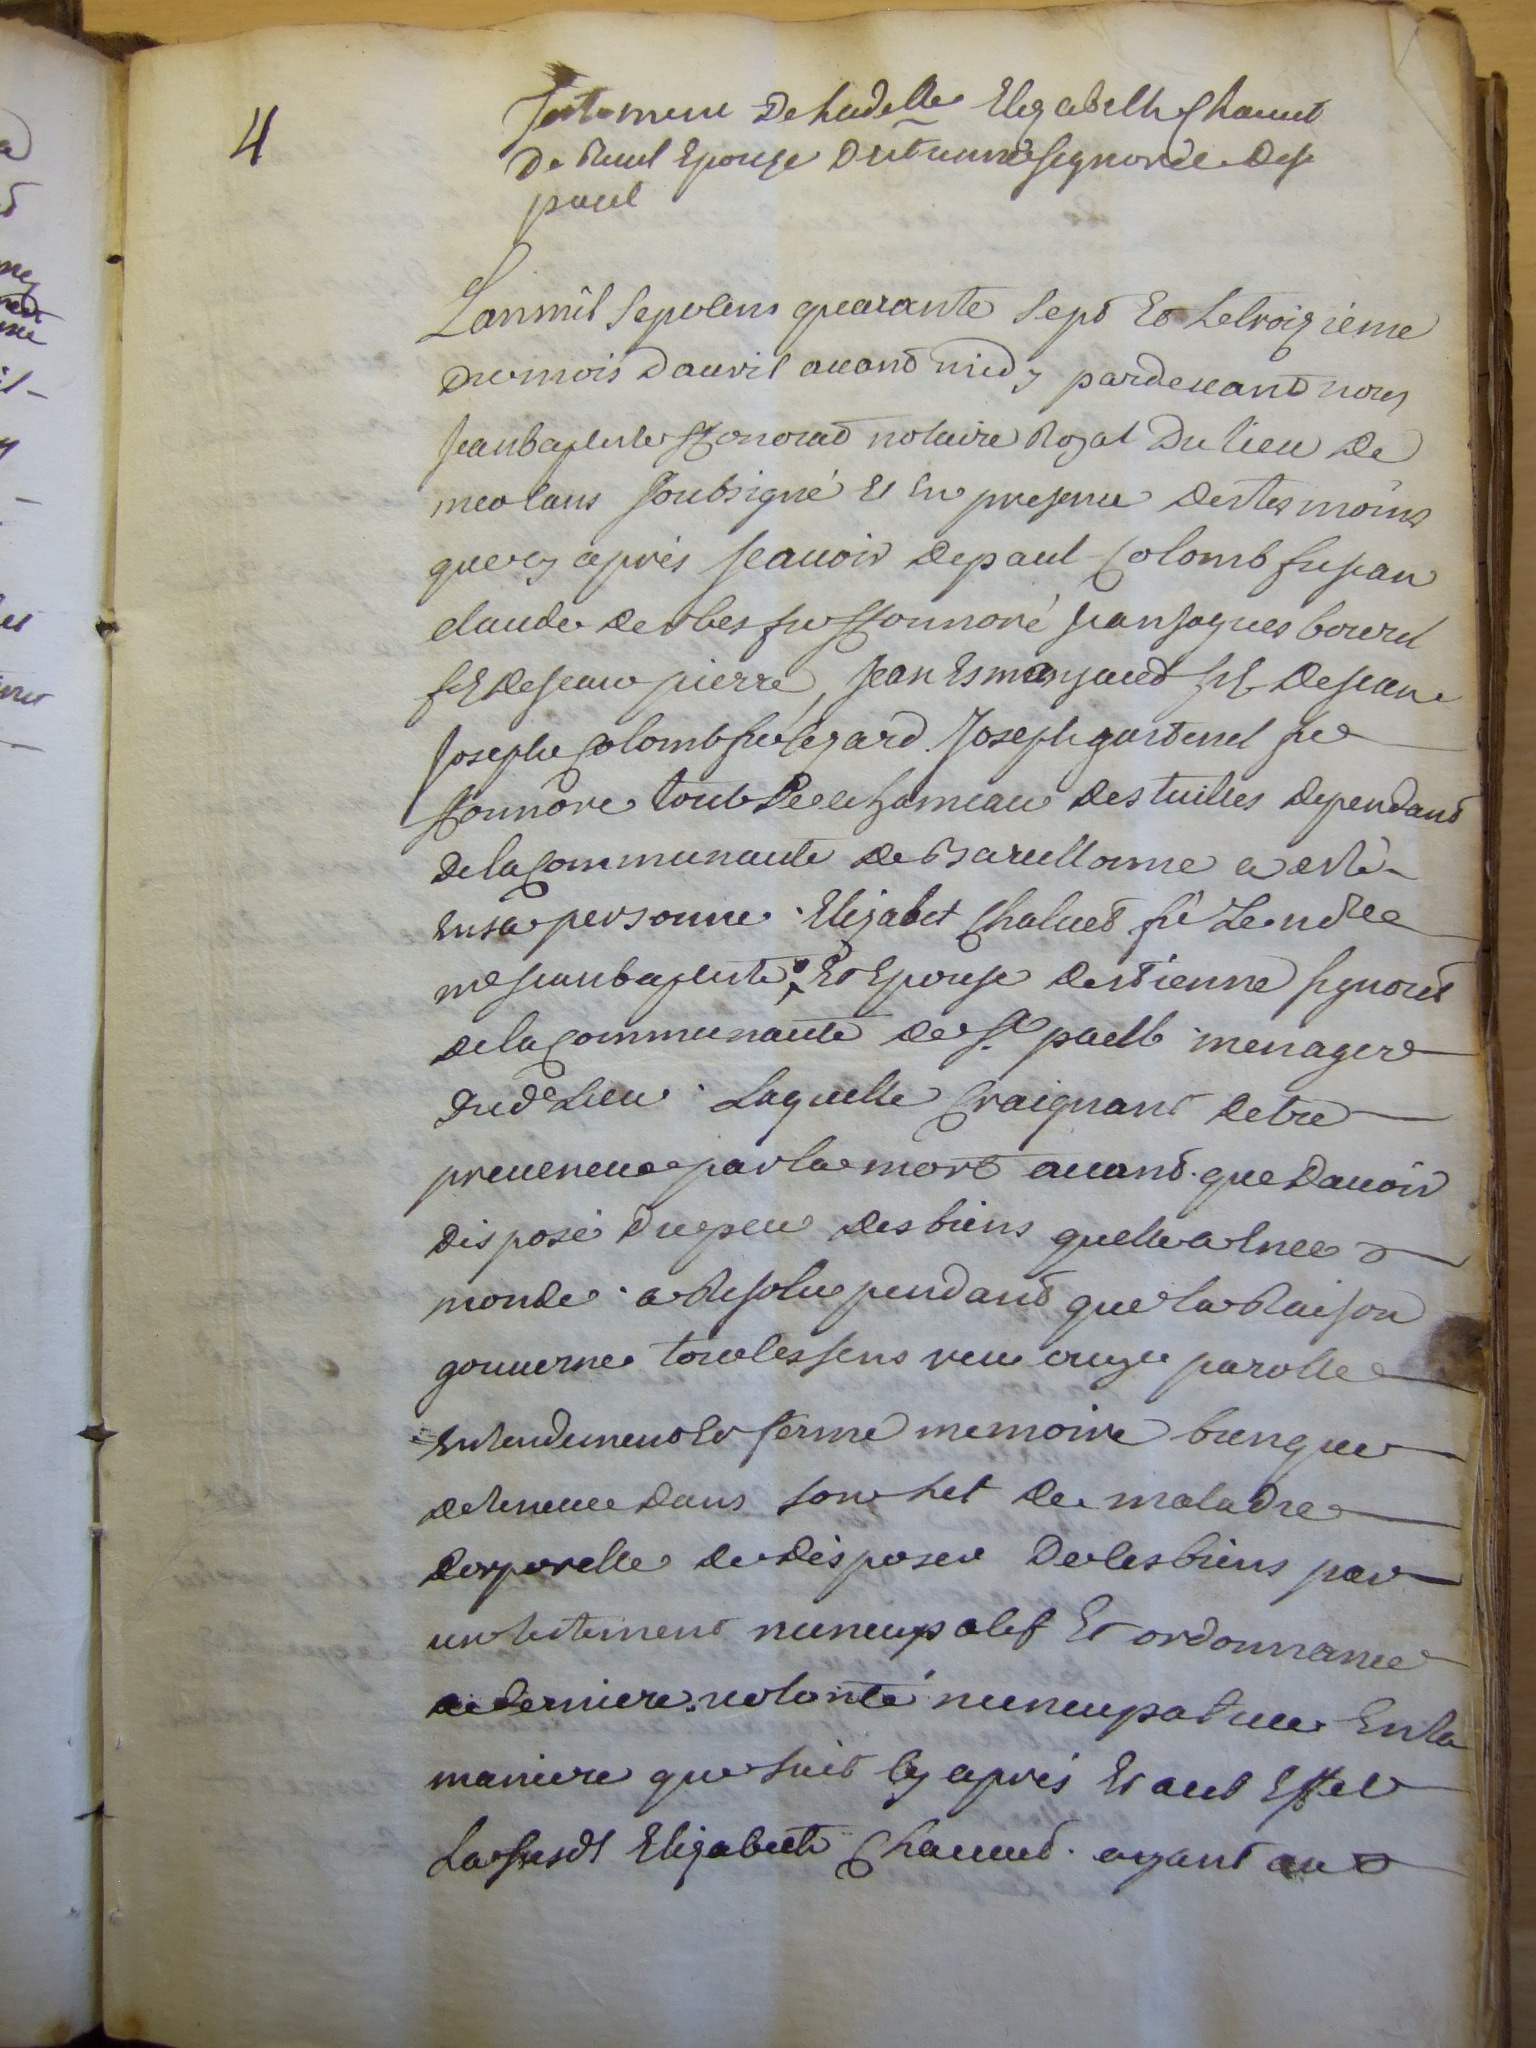 4
Testament De hadelle Elizabelh Chauut
De Paul Epouse Destienne Signoret De St
paul
Lanmil Septcens quarante Sept Et Letroizieme
Dumois Dauvril auand midy pardeuand nous
Jeanbaptiste Honorad notaire Royal Du lieu De
meolans Soubsigné Et En presence Destesmoins
quecy aprés Scauoir Depaul Colomb fujean
claude Derbes fu Honnoré Jean Jaques bourel
fils Dejean pierre, Jean Esmanjaud fils Dejean
Joseph Colomb fu Cezard. Joseph gastinel fu
Honnoré tous De ce hameau Des tuilles Dependand
De la Communauté De Barcellonne a esté
En sa personne Elizabet Chaluet fu Le
me Jeanbaptiste Et Epouse Destienne Signoret
De la Communauté De St paul menagere
Dud Lieu Laquelle Craignant Detre
preueneue par la mort auand que Dauoir
Disposé Du peu Des biens quelle a En ce
monde a Resolu pendand que la Raison
gouuerne tous les Sens veue ouye parolle
Entendement Et ferme memoire bien que
Detenue Dans son het De maladie
Corporelle De Disposer De Ses biens par
un testament nuncupatif Et ordonnance
De Derniere volonté nuncupatiue En la
maniere que Suit Cy aprés Et aud Effet
La Susdt Elizabeth Chauud ayant au